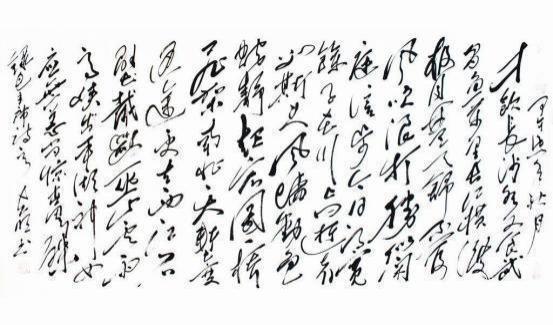 秋月
才饮长沙水又食武
昌鱼万里长江横渡
极目楚天舒不管
风吹浪打胜似闲
庭信步今日得宽
馀子在川上曰逝者
如斯夫风樯动龟
蛇静起宏图一桥
飞架南北天堑变
通途更立西江石
壁截断巫山云雨
高峡出平湖神女
应无恙当惊世界殊
录毛主席诗词 书